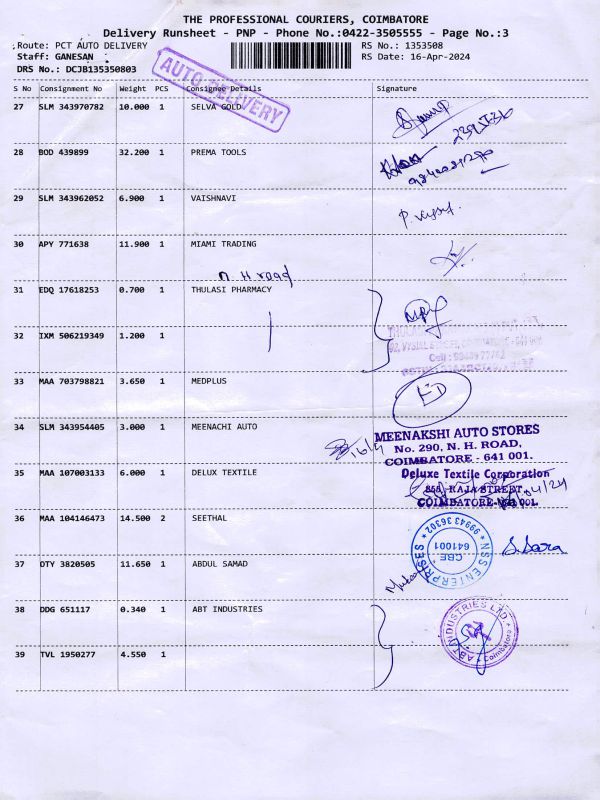 THE PROFESSIONAL COURIERS, COIMBATORE
Delivery Runsheet - PNP - Phone No.:0422-3505555 - Page No.:3
Route: PCT AUTO DELIVERY RS No.: 1353508
Staff: GANESAN RS Date: 16-Apr-2024
DRS No.: DCJB135350803
AUTO DELIVERY
S No Consignment No Weight PCS Consignee Details Signature
27 SLM 343970782 10.000 1 SELVA GOLD
28 BOD 439899 32.200 1 PREMA TOOLS
29 SLM 343962052 6.900 1 VAISHNAVI
30 APY 771638 11.900 1 MIAMI TRADING
n. H road
31 EDQ 17618253 0.700 1 THULASI PHARMACY
32 IXM 506219349 1.200 1
33 MAA 703798821 3.650 1 MEDPLUS
34 SLM 343954405 3.000 1 MEENACHI AUTO
16/4
MEENAKSHI AUTO STORES
No. 290, N. H. ROAD,
COIMBATORE - 641 001.
35 MAA 107003133 6.000 1 DELUX TEXTILE
Deluxe Textile Corporation
RAJA STREET
COIMBATORE
36 MAA 104146473 14.500 2 SEETHAL
NSS ENTERPRISES * 99943 36302 *
CBE
641001
37 OTY 3820505 11.650 1 ABDUL SAMAD
38 DDG 651117 0.340 1 ABT INDUSTRIES
ABT INDUSTRIES LTD
Coimbatore
39 TVL 1950277 4.550 1